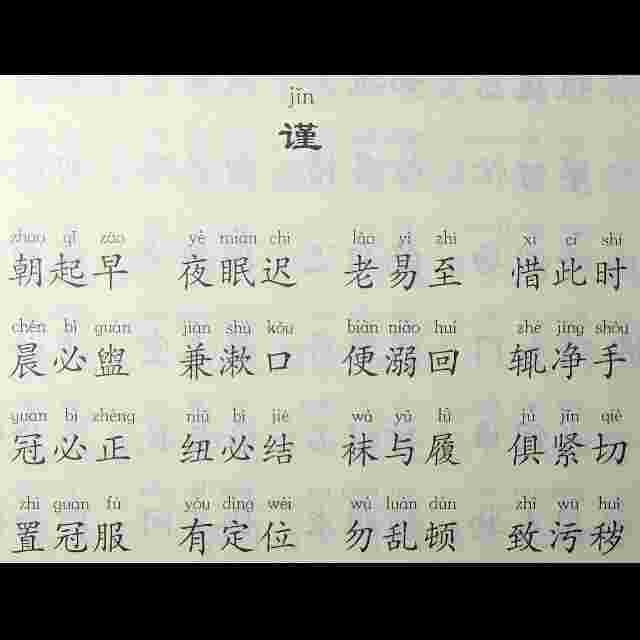 jǐn
谨
zhāo qǐ zǎo yè mián chí lǎo yì zhì xī cǐ shí
朝起早 夜眠迟 老易至 惜此时
chén bì guàn jiān shù kǒu biàn niào huí zhé jìng shǒu
晨必盥 兼漱口 便溺回 辄净手
guān bì zhèng niǔ bì jié wà yǔ lǚ jù jǐn qiè
冠必正 纽必结 袜与履 俱紧切
zhì guān fú yǒu dìng wèi wù luàn dùn zhì wū huì
置冠服 有定位 勿乱顿 致污秽